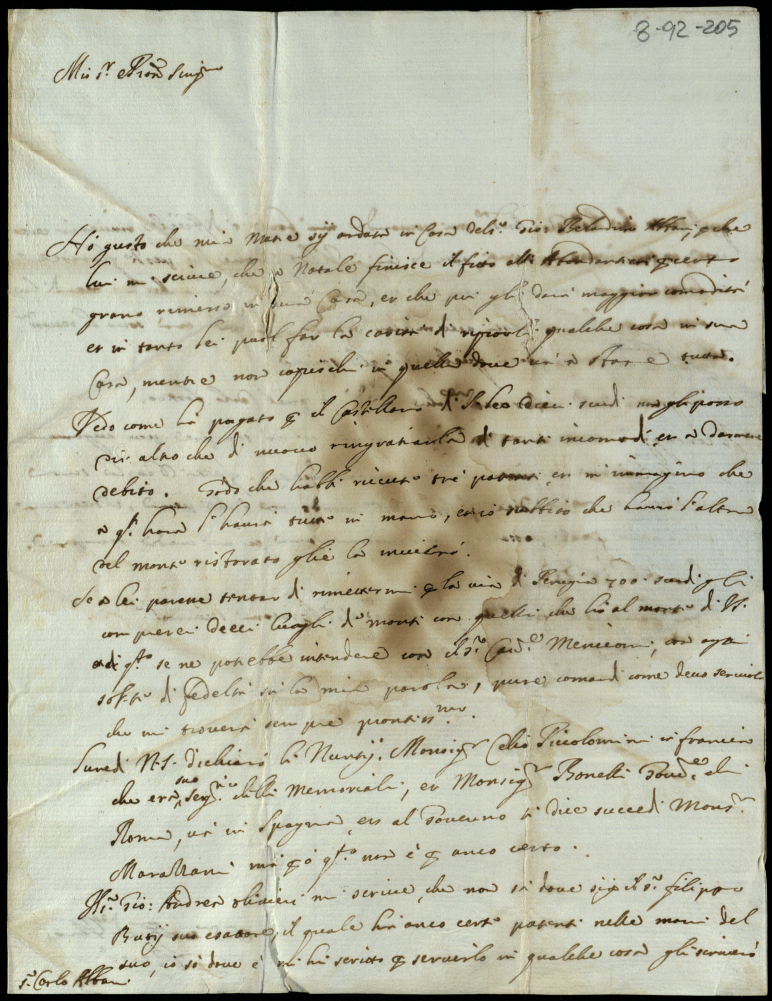 8-92-205
Mio S.r e Pron Sing.re
Hò gusto che mia Madre sij andata in Casa del S.r Gio: Belardino Albani, che
lui mi scrive, che a Natale finisce il fitto
grano rimesso in una Casa, et che poi gli darà maggior comodità
et in tanto lei puol far la carità di riporli qualche cosa in sua
Casa, mentre non capischi in quella dove và a stare tutta.
Vedo come hà pagato p il Castellano di S. Leo dieci scudi non gli posso
dir altro che di nuovo ringratiarla di tanti incomodi, et a darmene
debito. Godo che habbi riceuto trè patenti, et m'immagino che
a q.st hora l'haurà tutte in mano, et io subbito che haurò l'altra
del monte ristorato glie la inuierò.
Se a lei paresse tentar di rimettermi p la via di Perugia 700 scudi p li
comprerei dieci luoghi di monti con quelli che hà al monte di
di q.sto se ne potrebbe intendere con il S.r Cav.re Meniconi, con ogni
sorte di fedeltà sù la mia parola, pure comandi come devo servirla
che mi troverà sempre prontiss.mo
Lunedì N.S. dichiarò li Nuntij. Monsig.r Celio Piccolomini in francia
che era suo Seg.rio delli Memoriali, et Monsig.r Bonelli Gover.re di
Roma, và in Spagna, et al Governo si dice succedi Mons.r
Marazzani mà p q.sto non è p anco certo.
Il S.r Gio: Andrea Olivieri mi scrive, che non sà dove sij il S.r filippo
Busij suo esattore, il quale hà anco certe patenti nelle mani del
suo, io sò dove è gli hò scritto p servirlo in qualche cosa gli scriverò
S.r Carlo Albani